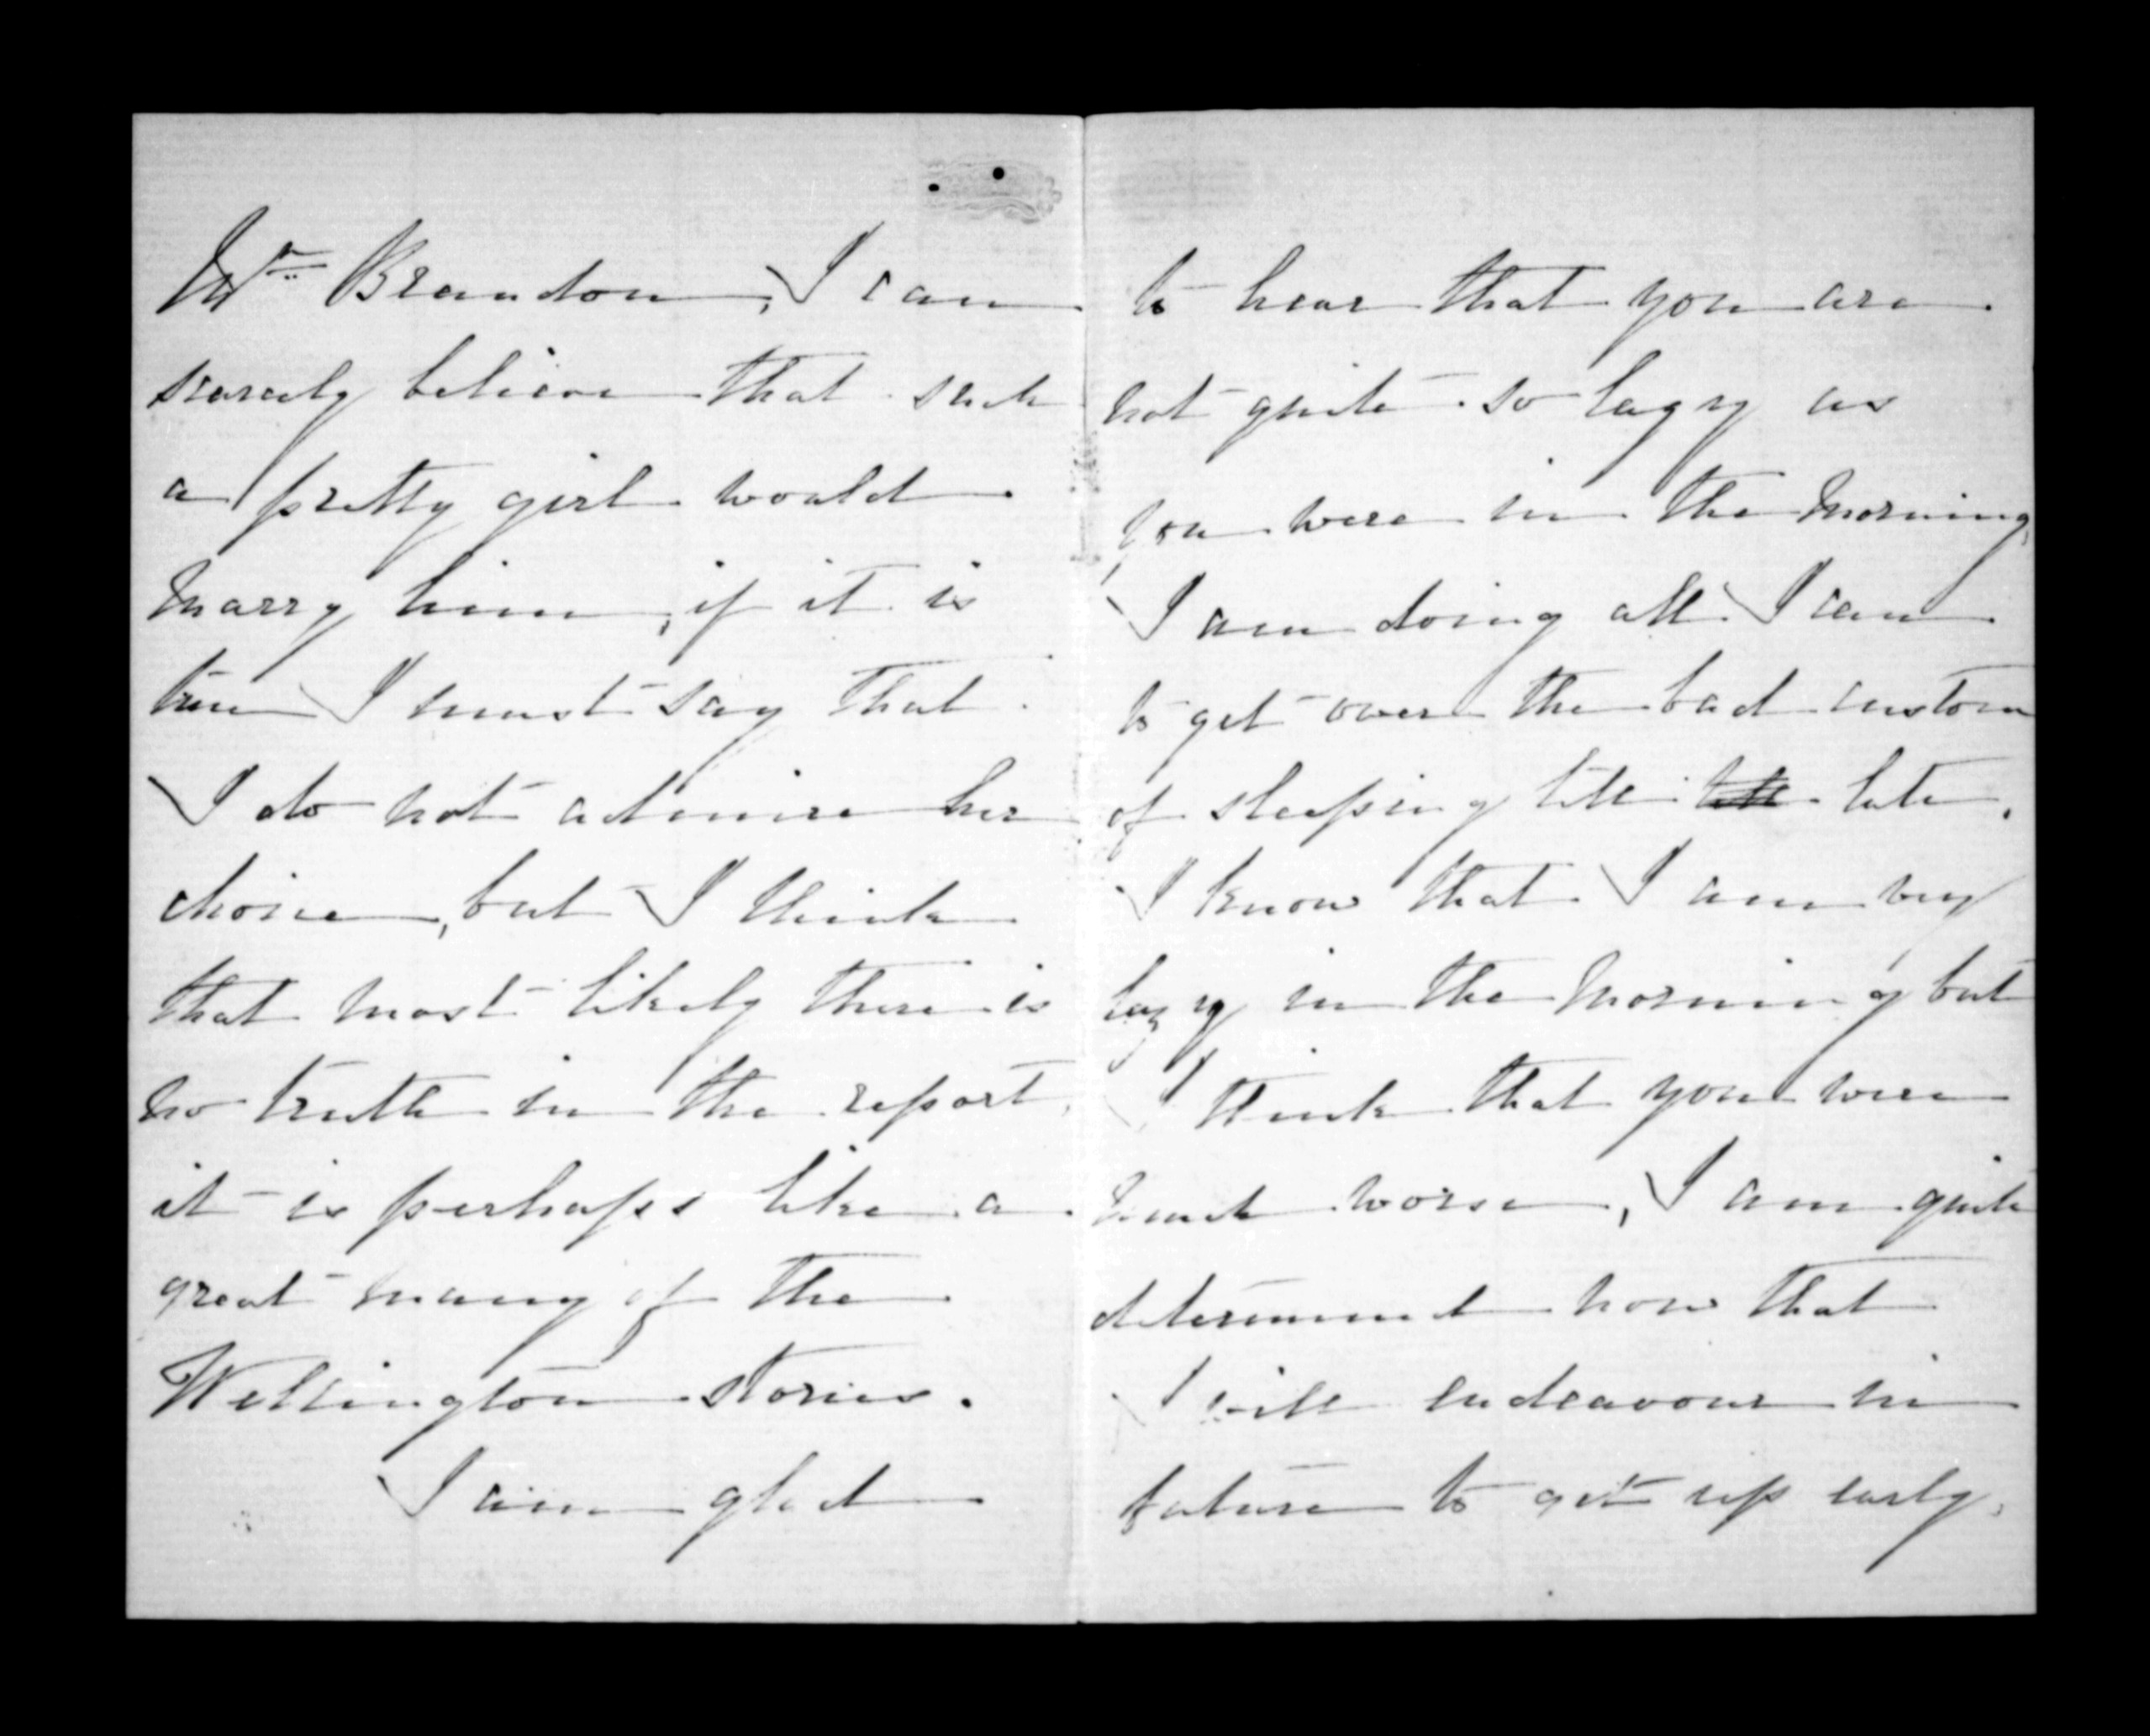 Mr Brandon, I can
scarcely believe that such
a pretty girl would
marry him, if it is
true I must say that
I do not admire her
choice, but I think
that most likely there is
no truth in the report,
it is perhaps like a
great many of the
Wellington stories.
I am glad
to hear that you are
not quite so lazy as
you were in the morning,
I am doing all I can
to get over the bad custom
of sleeping till late.
I know that I am very
lazy in the morning but
I think that you were
much worse, I am quite
determined now that
I will endeavour in
future to get up early.